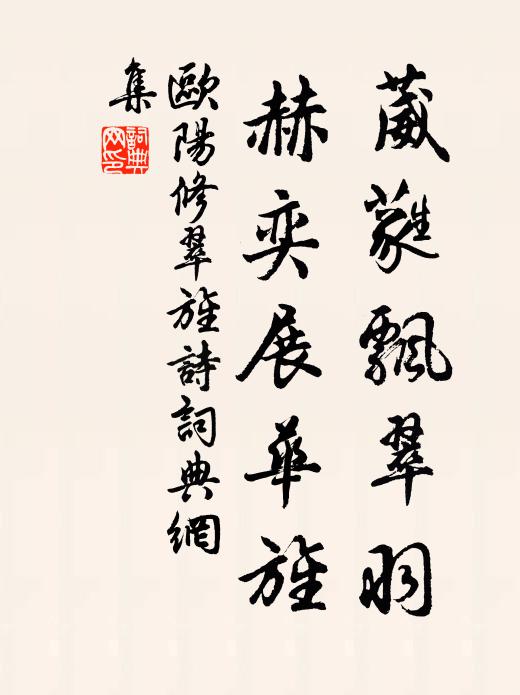 葳蕤飄翠羽
赫奕展華旌
歐陽修翠旌詩詞典網
集
詞典
网印